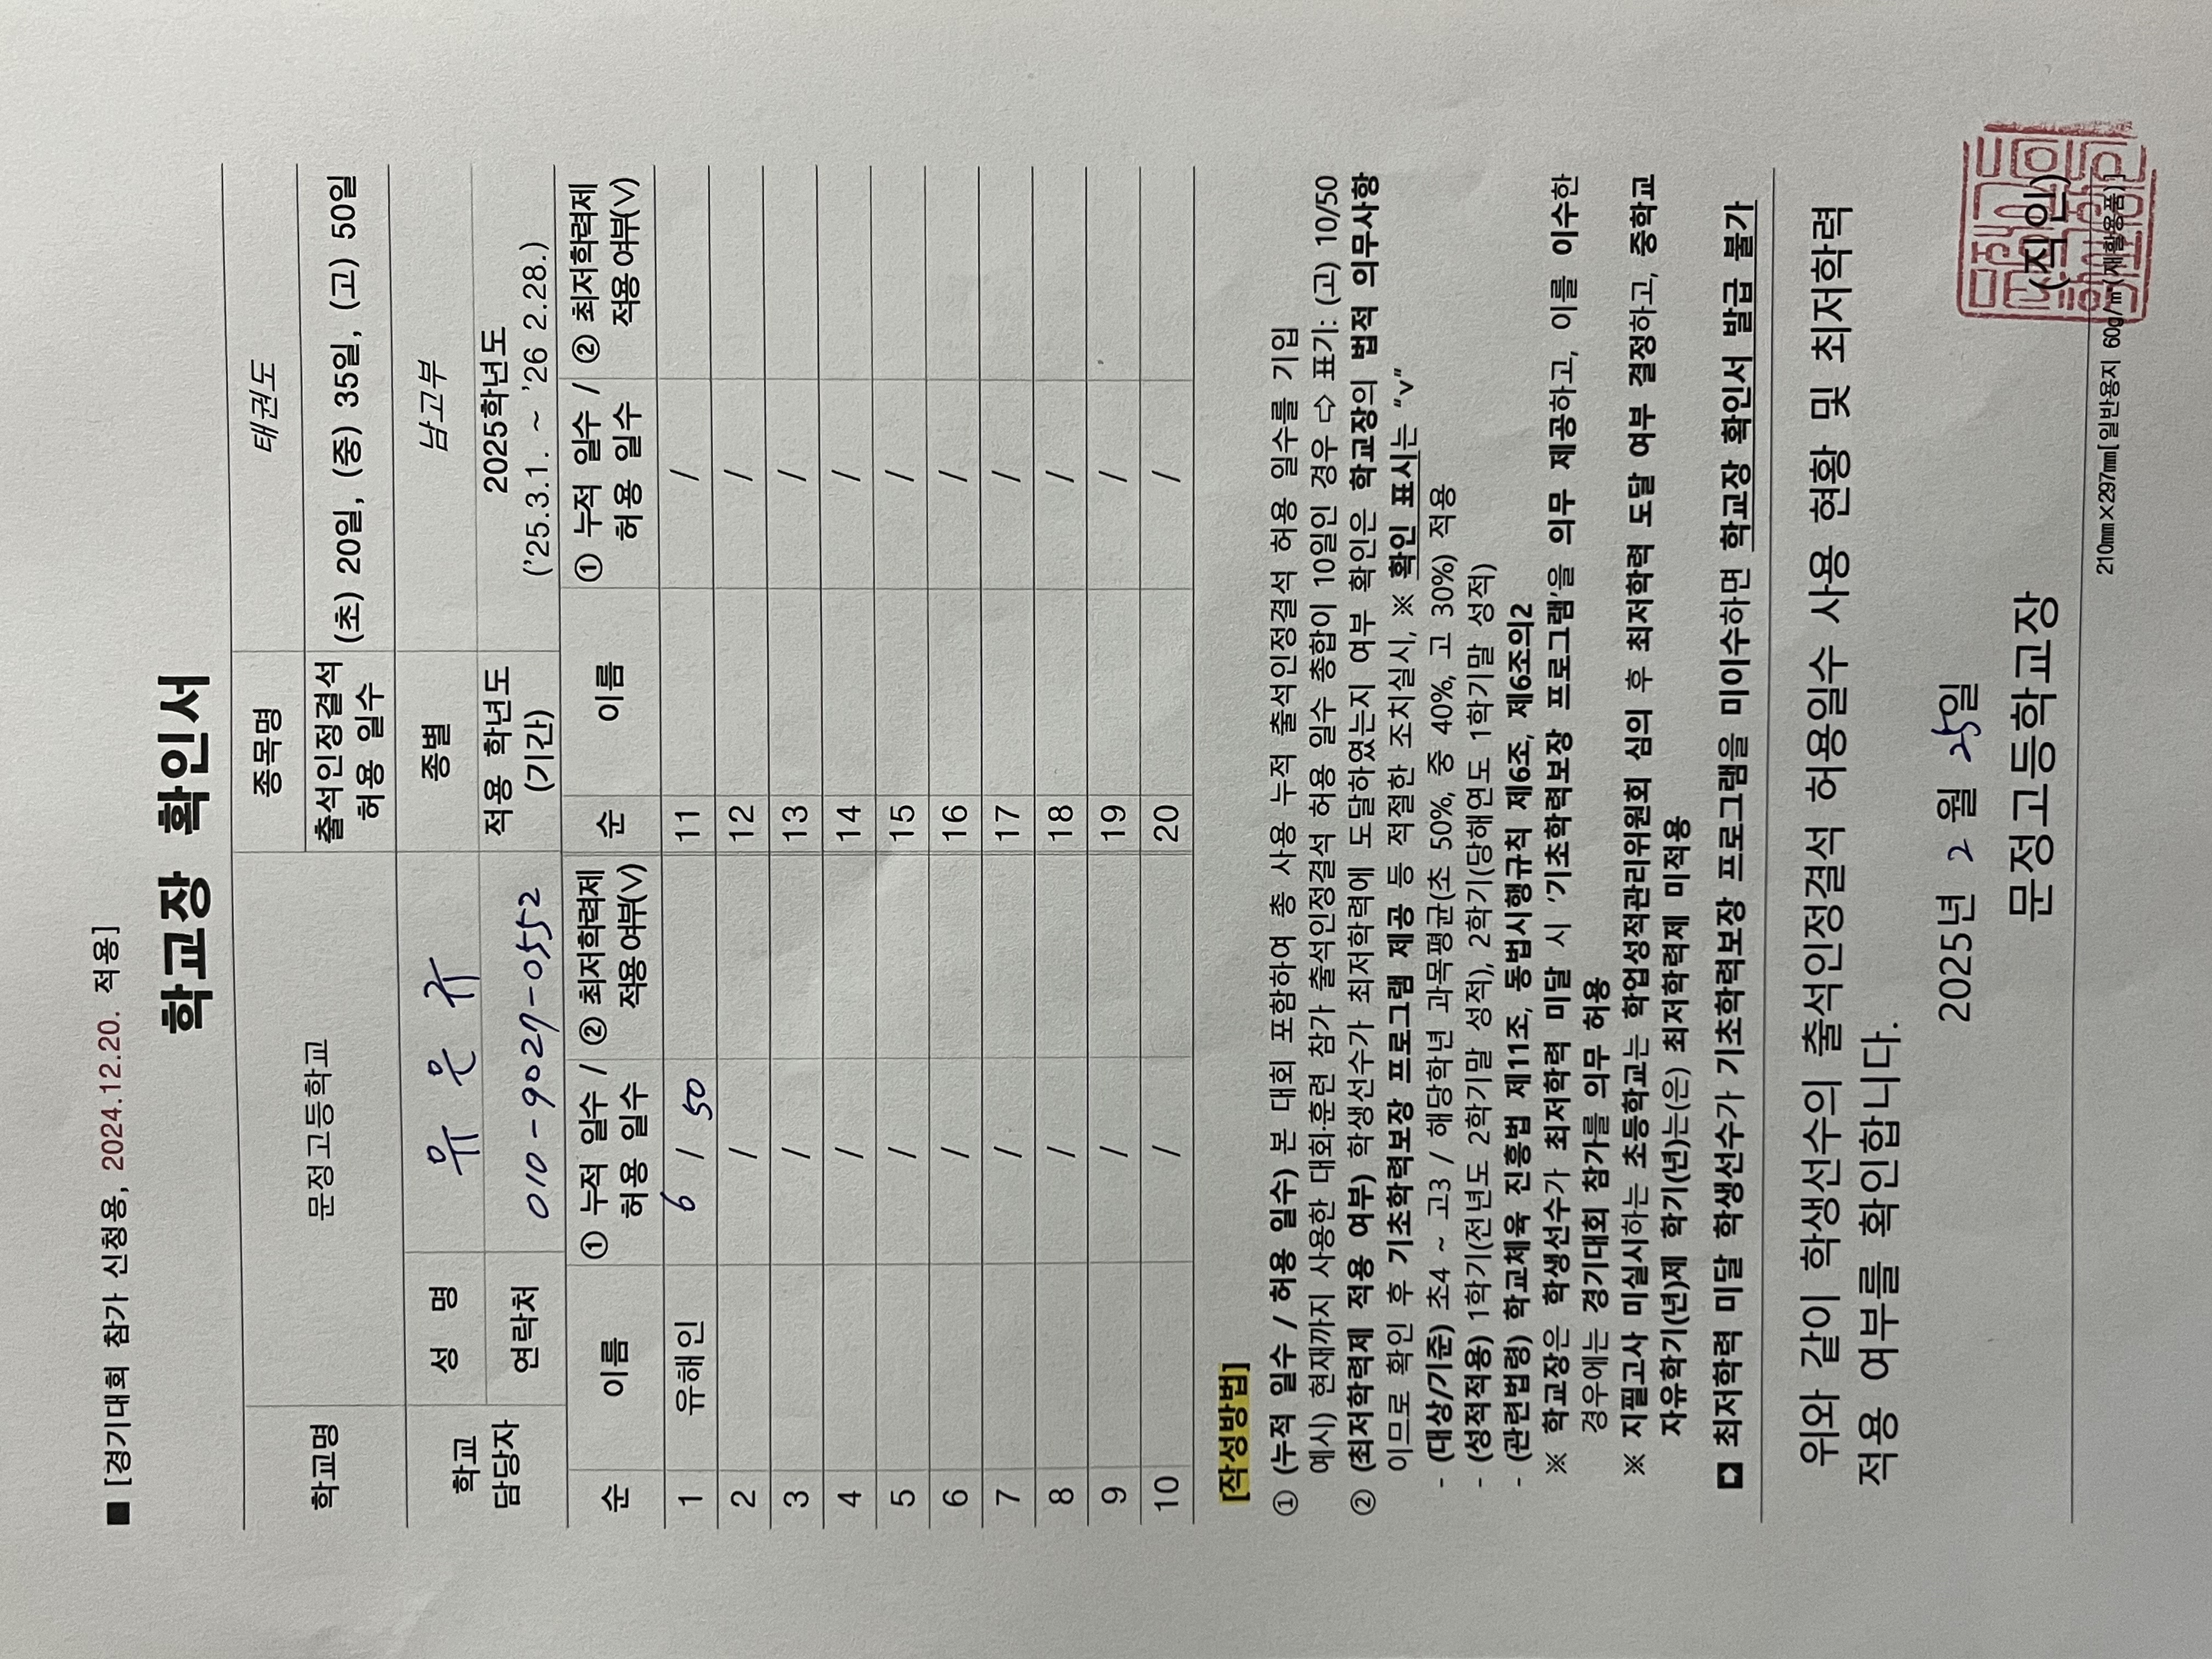 ■ [경기대회 참가 신청용, 2024.12.20. 적용]
학교장 확인서
학교명 문정고등학교 종목명 태권도
출석인정결석 허용 일수 (초) 20일, (중) 35일, (고) 50일
학교 담당자 성 명 유 은 규 종별 남고부
연락처 010-9027-0552 적용 학년도 (기간) 2025학년도 ('25.3.1. ~ '26 2.28.)
순 이름 ① 누적 일수 / 허용 일수 ② 최저학력제 적용여부(V) 순 이름 ① 누적 일수 / 허용 일수 ② 최저학력제 적용여부(V)
1 유해인 6 / 50 11 /
2 / 12 /
3 / 13 /
4 / 14 /
5 / 15 /
6 / 16 /
7 / 17 /
8 / 18 /
9 / 19 /
10 / 20 /
[작성방법]
① (누적 일수 / 허용 일수) 본 대회 포함하여 총 사용 누적 출석인정결석 허용 일수를 기입
예시) 현재까지 사용한 대회·훈련 참가 출석인정결석 허용 일수 총합이 10일인 경우 ⇨ 표기: (고) 10/50
② (최저학력제 적용 여부) 학생선수가 최저학력에 도달하였는지 여부 확인은 학교장의 법적 의무사항
이므로 확인 후 기초학력보장 프로그램 제공 등 적절한 조치실시, ※ 확인 표시는 "v"
- (대상/기준) 초4 ~ 고3 / 해당학년 과목평균(초 50%, 중 40%, 고 30%) 적용
- (성적적용) 1학기(전년도 2학기말 성적), 2학기(당해연도 1학기말 성적)
- (관련법령) 학교체육 진흥법 제11조, 동법시행규칙 제6조, 제6조의2
※ 학교장은 학생선수가 최저학력 미달 시 '기초학력보장 프로그램'을 의무 제공하고, 이를 이수한
경우에는 경기대회 참가를 의무 허용
※ 지필고사 미실시하는 초등학교는 학업성적관리위원회 심의 후 최저학력 도달 여부 결정하고, 중학교
자유학기(년)제 학기(년)는(은) 최저학력제 미적용
최저학력 미달 학생선수가 기초학력보장 프로그램을 미이수하면 학교장 확인서 발급 불가
위와 같이 학생선수의 출석인정결석 허용일수 사용 현황 및 최저학력
적용 여부를 확인합니다.
2025년 2 월 25일
문정고등학교장 (직인)
210㎜×297㎜[일반용지 60g/㎡(재활용품)]